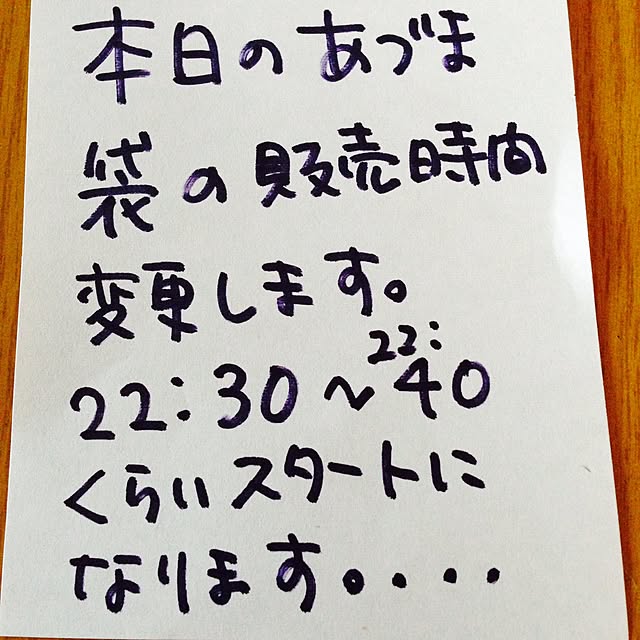 本日のあづま
袋の販売時間
変更します。
22:30〜22:40
くらいスタートに
なります。・・・